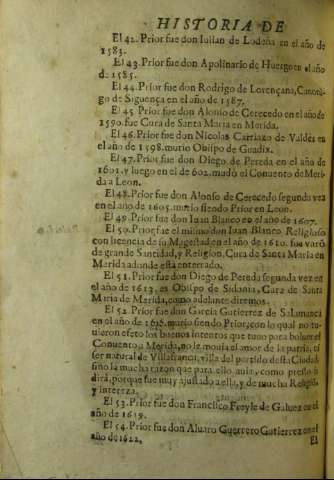 HISTORIA DE
El 42. Prior fue don Iulian de Lodeña en el año de
1583.
El 43. Prior fue don Apolinario de Huergo en el año
de 1585.
El 44. Prior fue don Rodrigo de Lorençana, Canoni-
go de Siguença en el año de 1587.
El 45. Prior fue don Alonso de Cerecedo en el año de
1590. fue Cura de Santa Maria en Merida.
El 46. Prior fue don Nicolas Carriazo de Valdés en
el año de 1598. murio Obispo de Guadix.
El 47. Prior fue don Diego de Pereda en el año de
1601. y luego en el de 602. mudò el Conuento de Meri-
da a Leon.
El 48. Prior fue don Alonso de Cerecedo segunda vez
en el año de 1605. murio siendo Prior en Leon.
El 49. Prior fue don Iuan Blanco en el año de 1607.
El 50. Prior fue el mismo don Iuan Blanco Religioso
con licencia de su Magestad en el año de 1610. fue varõ
de grande Santidad, y Religion, Cura de Santa Maria en
Merida adonde està enterrado.
El 51. Prior fue don Diego de Pereda segunda vez en
el año de 1613. es Obispo de Sidonia, Cura de Santa
Maria de Merida, como adelante diremos.
El 52. Prior fue don Garcia Gutierrez de Salamanca
en el año de 1616. murio siendo Prior, con lo qual no tu-
uieron efeto los buenos intentos que tuuo para boluer el
Conuento a Merida, no le mouia el amor de la patria, el
ser natural de Villafranca, villa del partido desta Ciudad,
sino la mucha razon que para ello auia, como presto se
dirà, porque fue muy ajustado a ella, y de mucha Religiõ,
y entereza.
El 53. Prior fue don Francisco Freyle de Galuez en el
año de 1619.
El 54. Prior fue don Aluaro Guerrero Gutierrez en el
año de 1622.
El